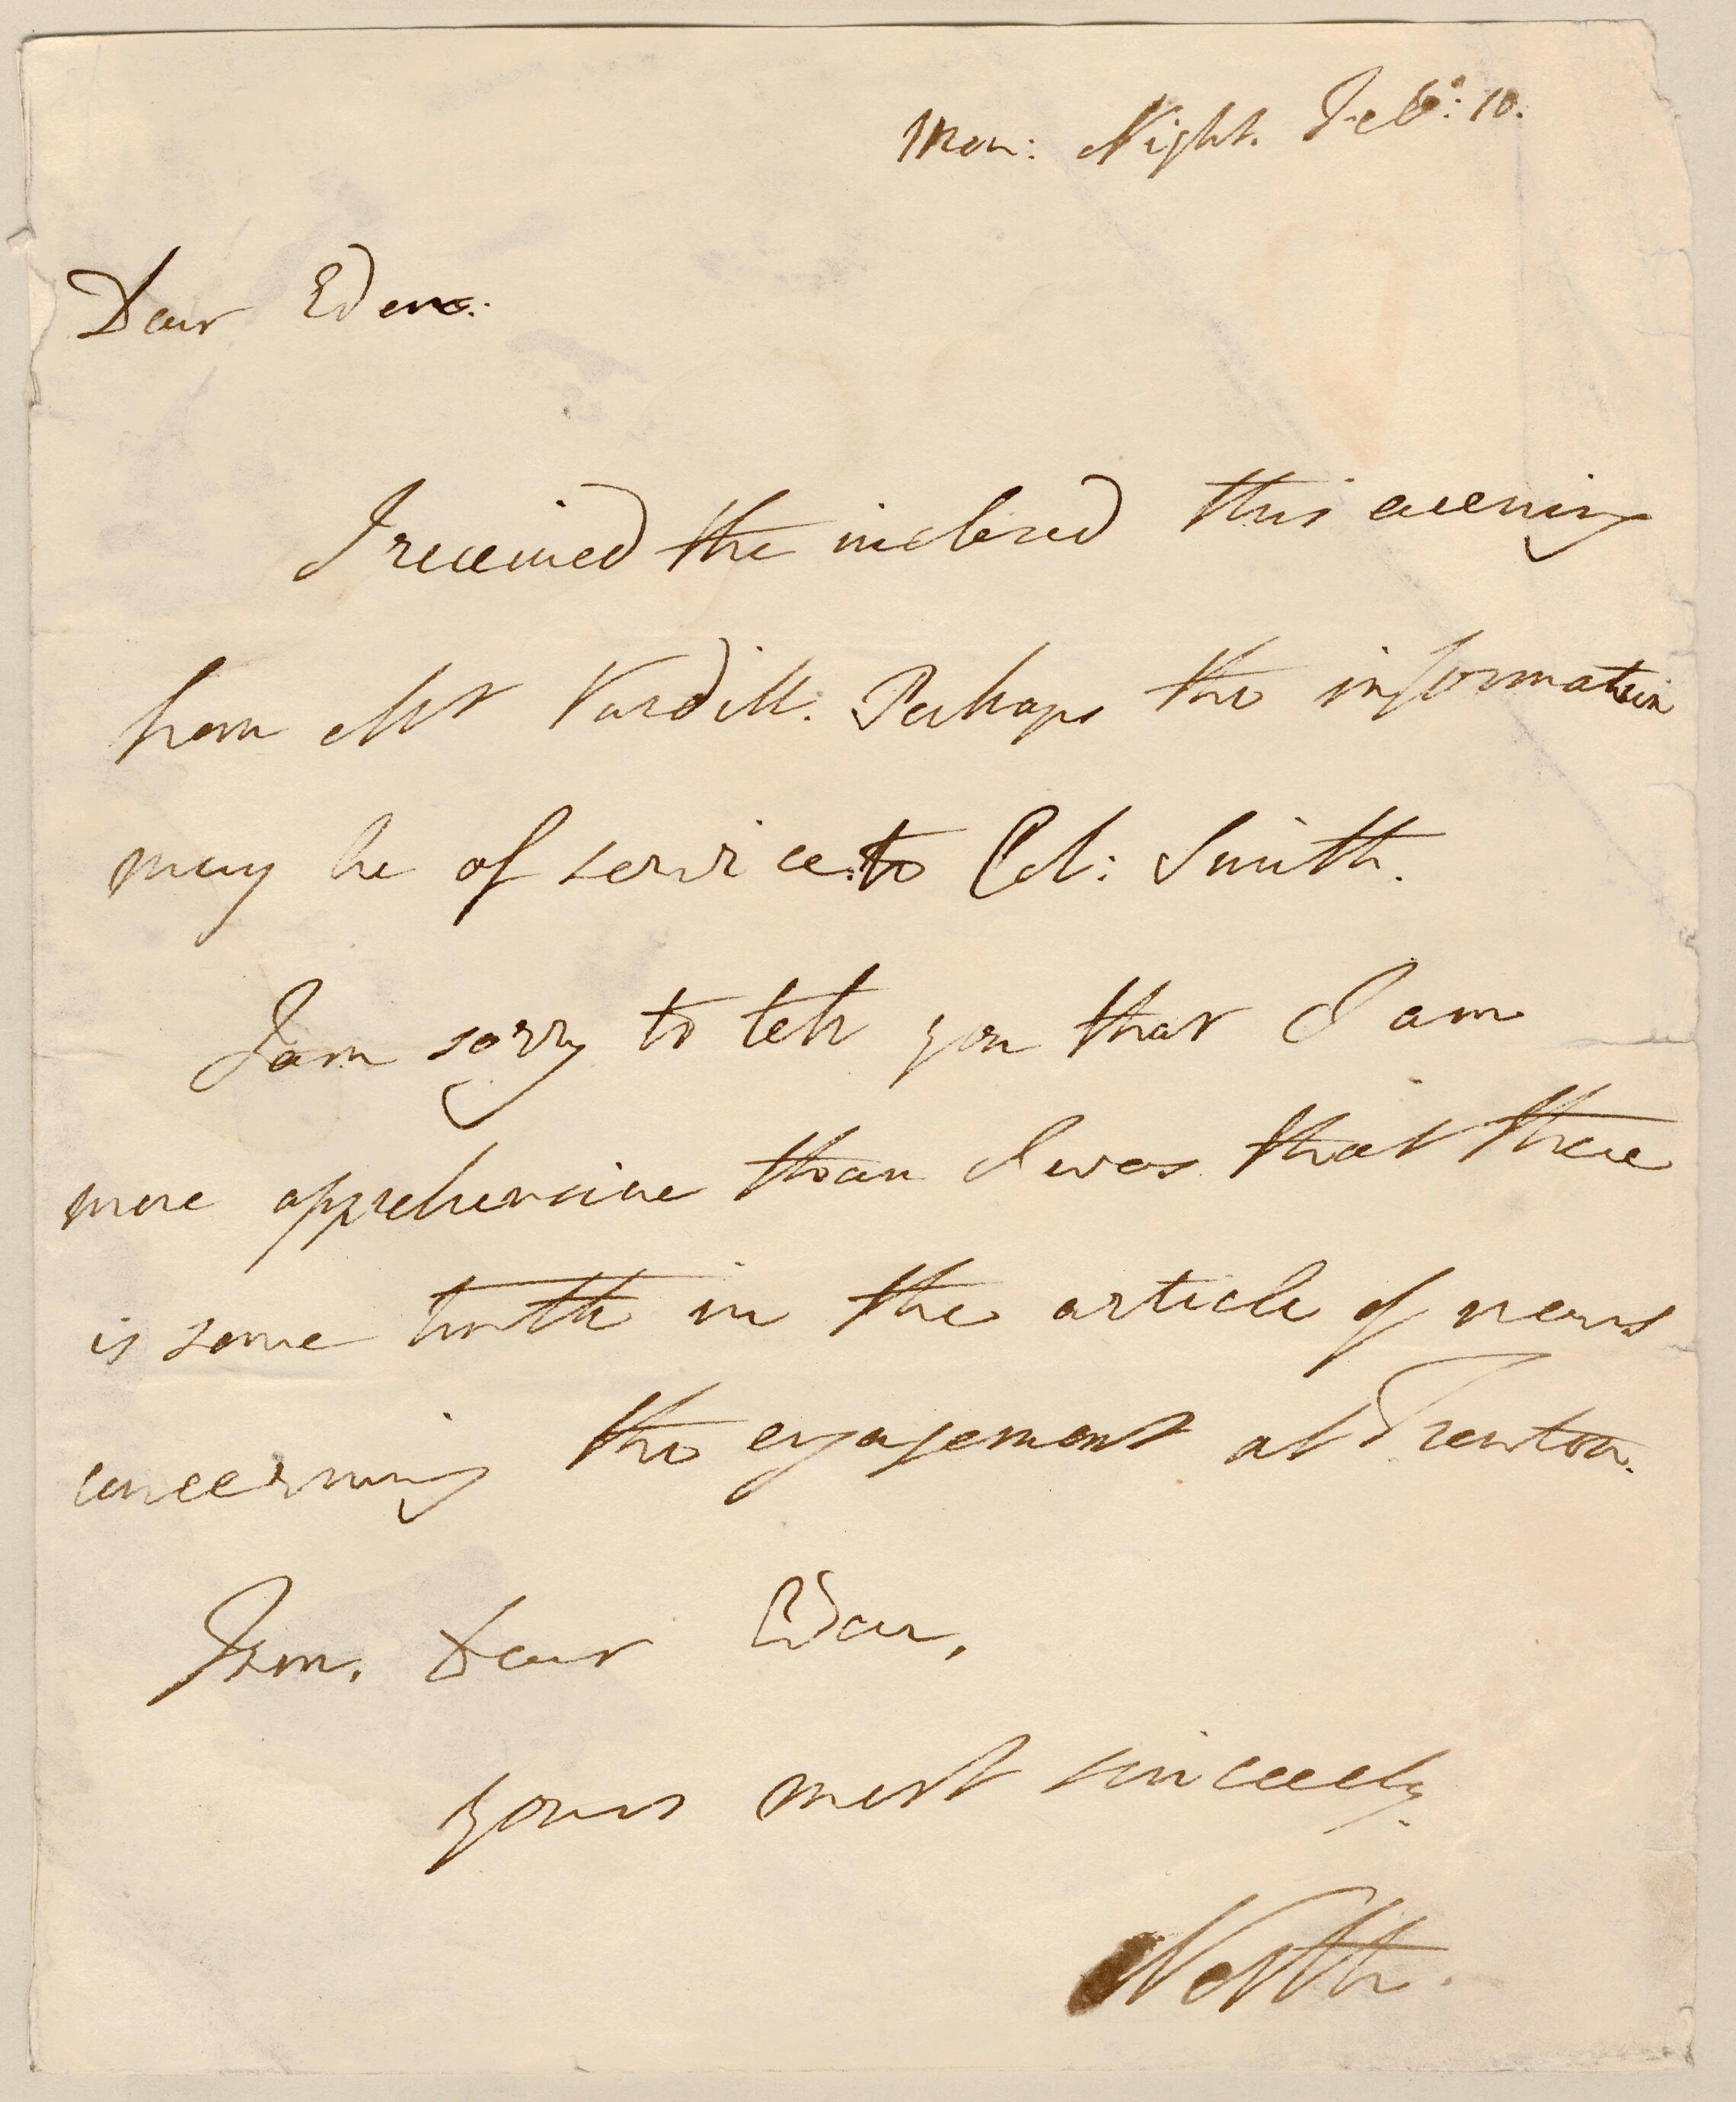 Mon: Night. Feb: 10.
Dear Eden.
I received the inclosed this evening
from Mr Vardill. Perhaps the information
may be of service to Col: Smith.
I am sorry to tell you that I am
more apprehensive than I was that there
is some truth in the article of news
concerning the engagement at Trenton.
I am, Dear Eden,
yours most sincerely
North.